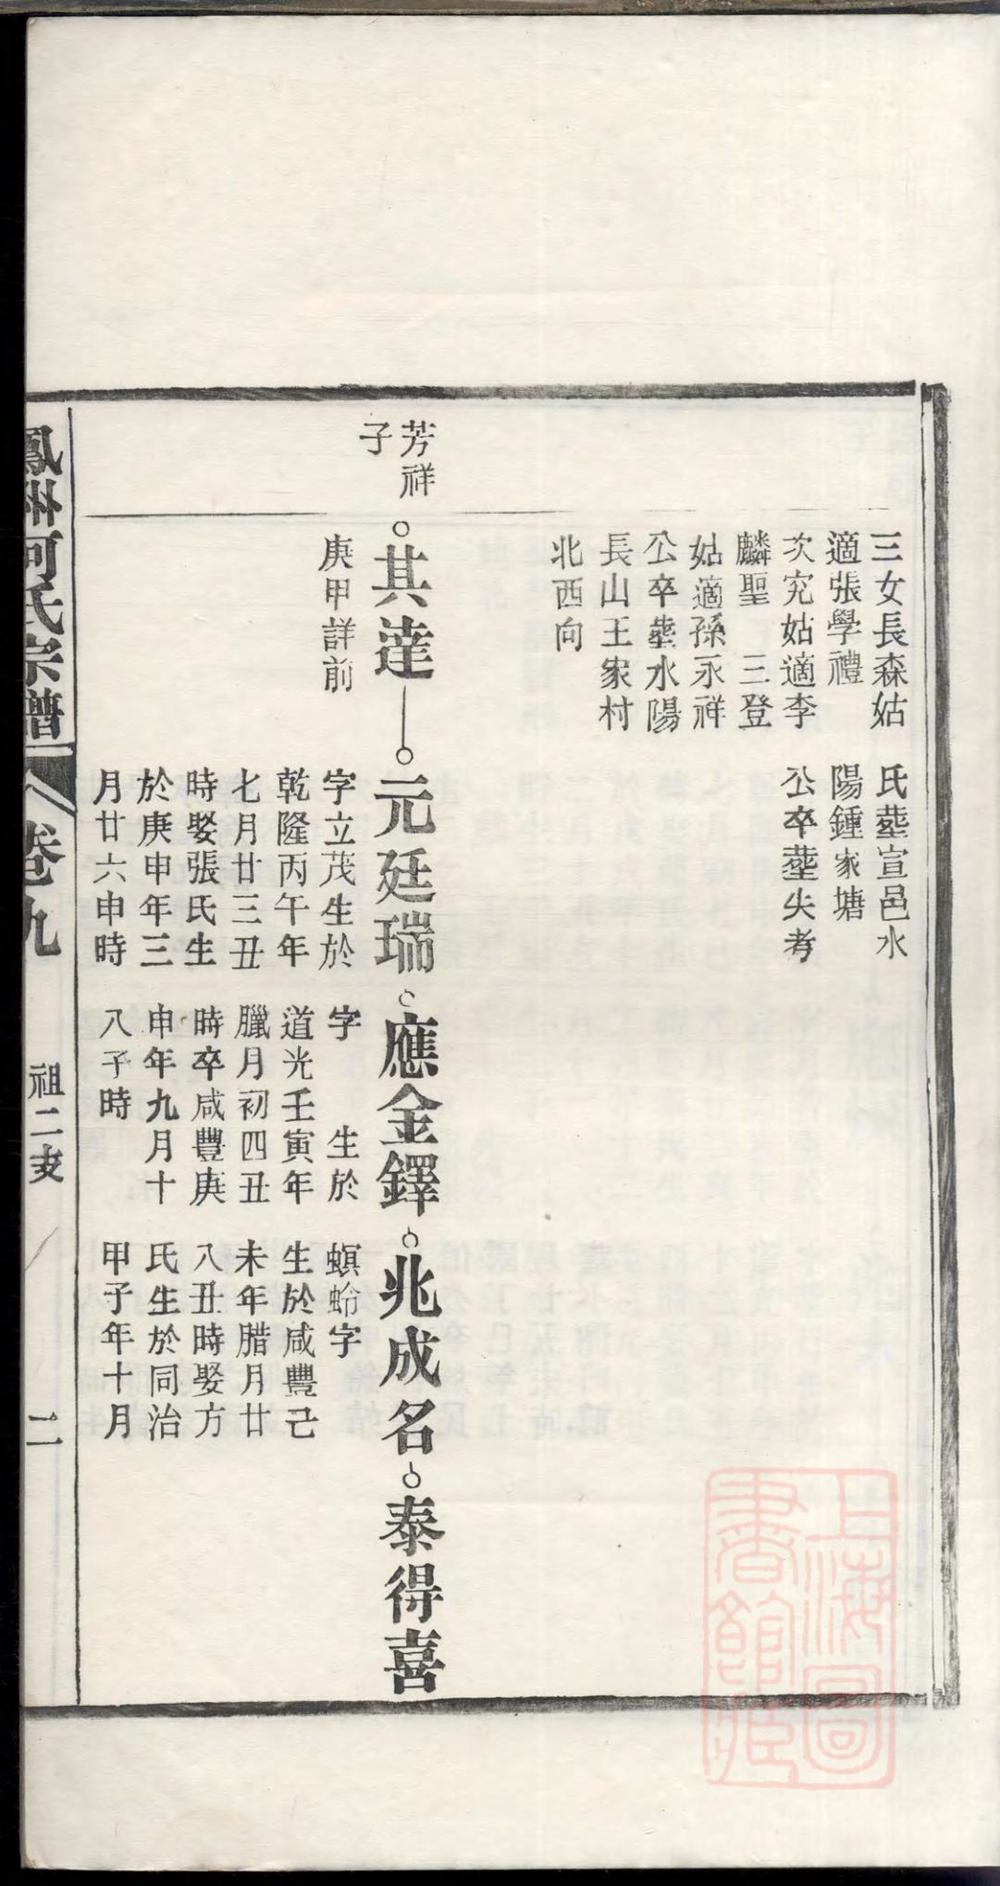 三女長森姑
適張學禮
次究姑適李
麟聖 三登
姑適孫永祥
公卒塟水陽
長山王家村
北西向
氏塟宣邑水
陽鍾家塘
公卒塟失考
芳祥
子
其達
庚甲詳前
元廷瑞
字立茂生於
乾隆丙午年
七月廿三丑
時娶張氏生
於庚申年三
月廿六申時
應金鐸
字 生於
道光壬寅年
臘月初四丑
時卒咸豐庚
申年九月十
八子時
兆成名
螟蛉字
生於咸豐己
未年腊月廿
八丑時娶方
氏生於同治
甲子年十月
泰得喜
鳳州何氏宗譜
卷九
祖二支
二
上海圖
書館藏